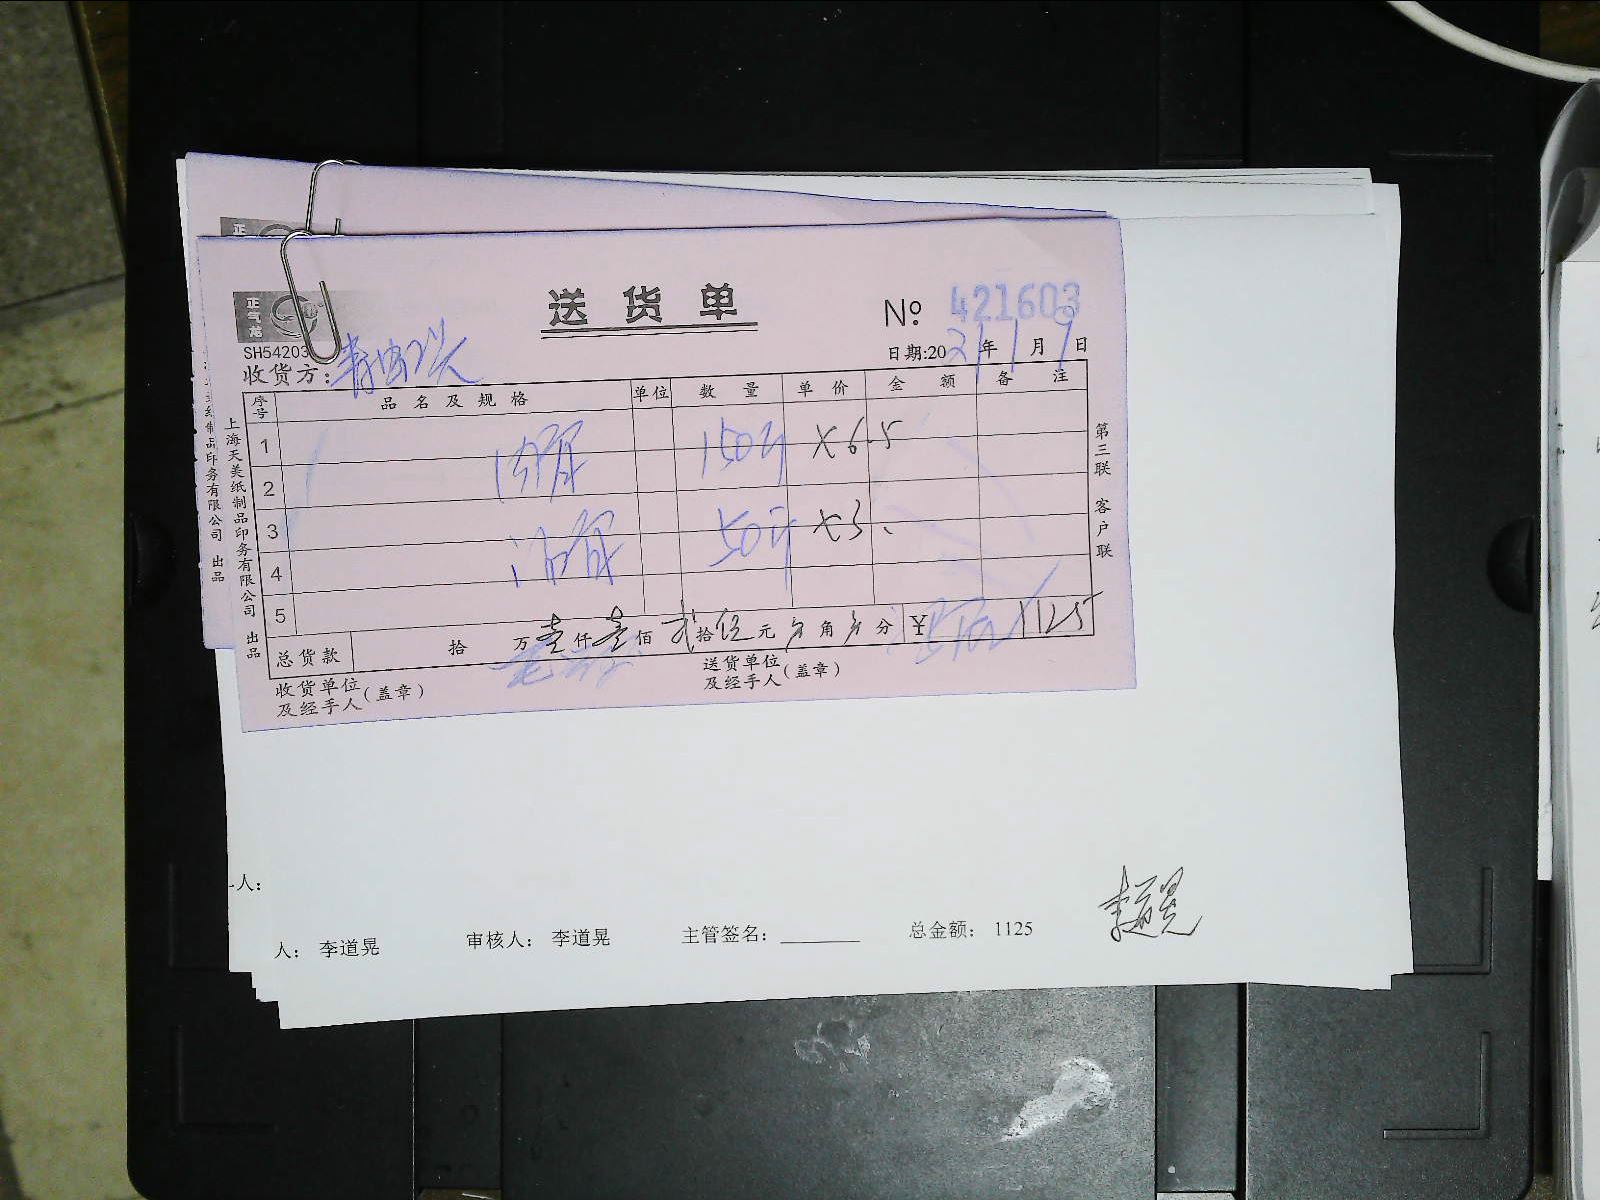 正
正气龙
送货单
№ 421603
SH54203
日期:2021年1月9日
收货方:
序号 品名及规格 单位 数量 单价 金额 备注
1 150斤 ×6.5
2
3 50斤 ×3
4
5
总货款 拾 万壹仟壹佰贰拾伍元 角 分 ¥ 1125
收货单位及经手人(盖章)
送货单位及经手人(盖章)
上海天美纸制品印务有限公司 出品
第三联 客户联
人:
人: 李道晃 审核人: 李道晃 主管签名: 总金额: 1125
李道晃